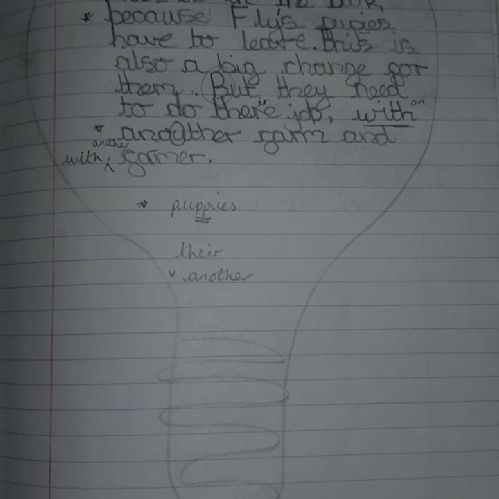 * because Fly's pupies
have to leave. this is
also a big change for
them. (But they need
to do there job, with on
their
* another farm and
another
with ^ farmer.
* puppies
their
v another